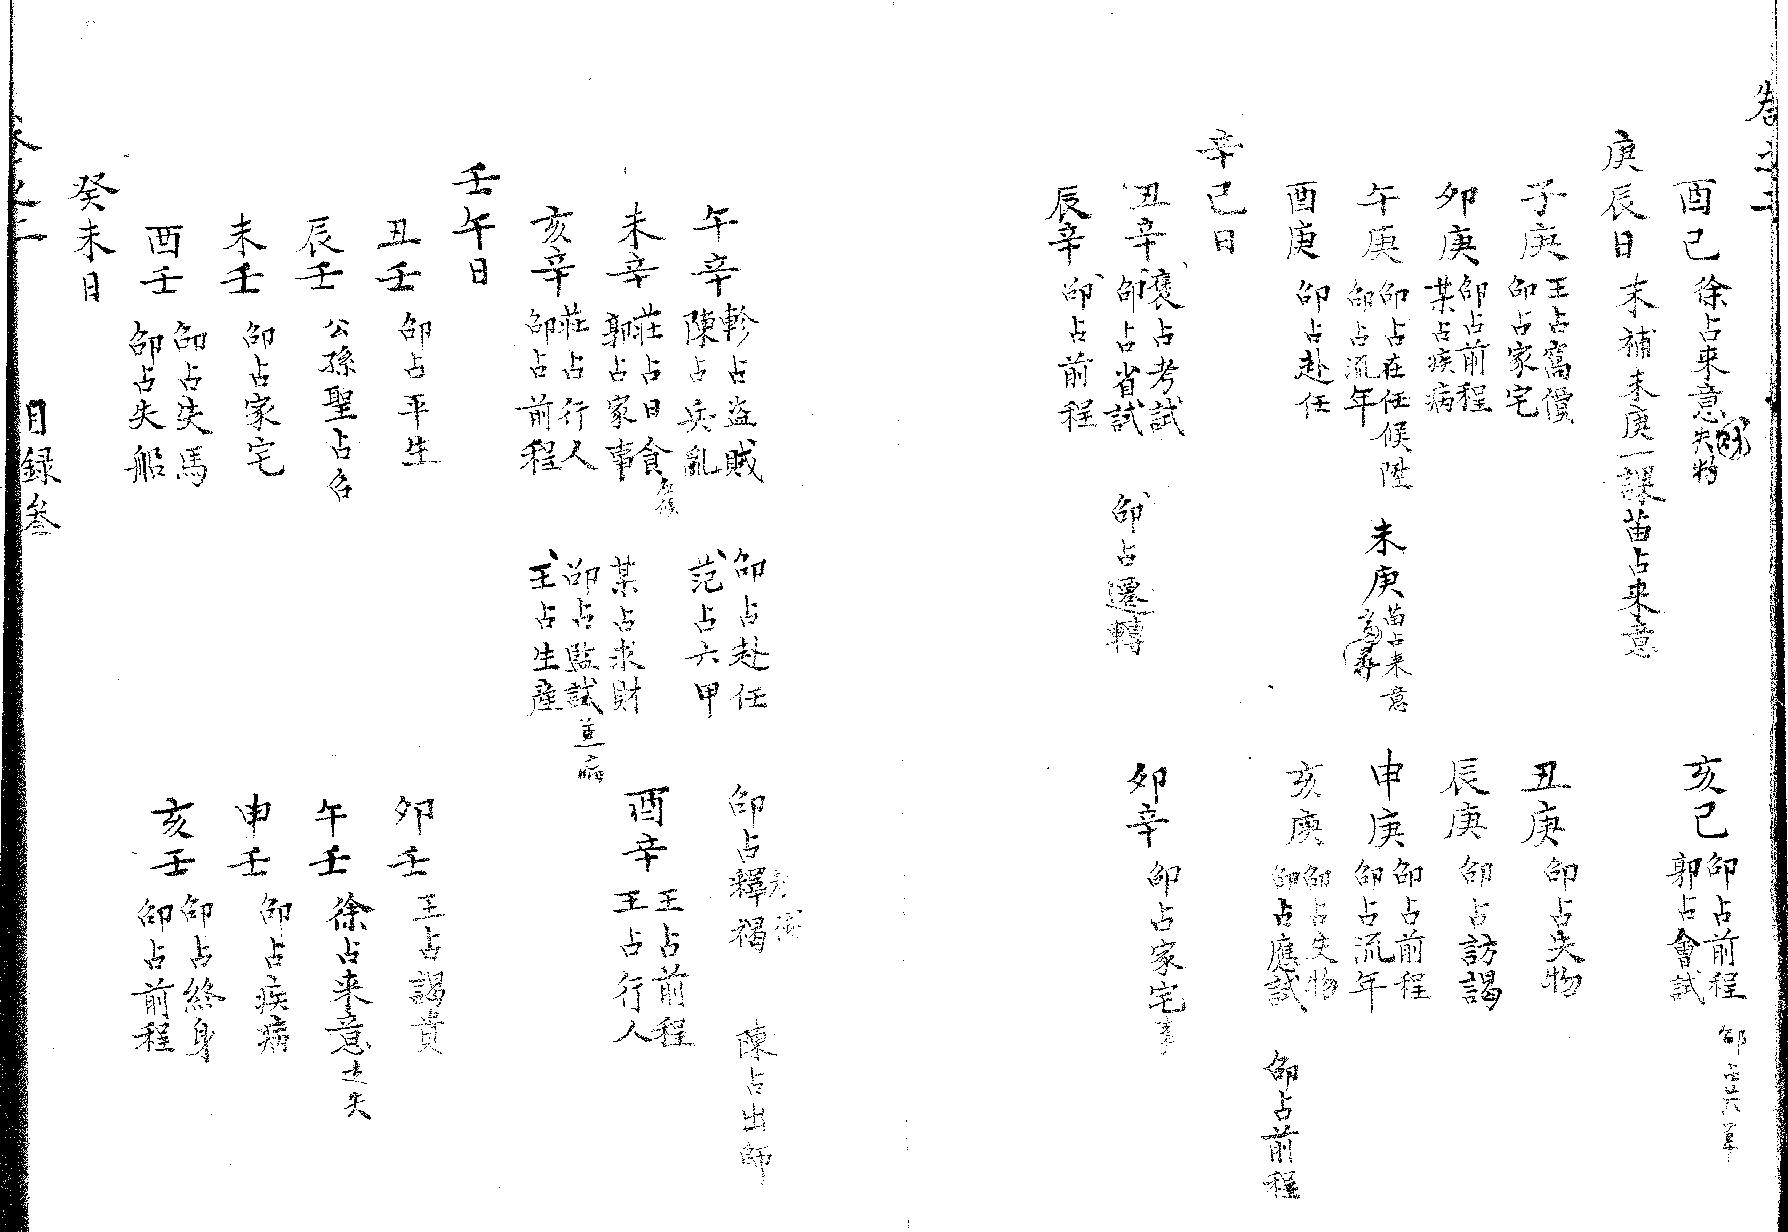 酉己 徐占来意失物
亥己 邵占前程 郭占會試
庚辰日 末補未庚一課苗占来意
子庚 王占窩價 邵占家宅
丑庚 邵占失物
卯庚 邵占前程 某占疾病
辰庚 邵占訪謁
午庚 邵占在任候陞 邵占流年
未庚 苗占来意
申庚 邵占前程 邵占流年
酉庚 邵占赴任
亥庚 邵占失物 邵占應試 邵占前程
辛巳日
丑辛 占考試 邵占省試 邵占遷轉
卯辛 邵占家宅
辰辛 邵占前程
午辛 軫占盜賊 陳占兵亂 邵占赴任 范占六甲 邵占釋褐 陳占出師
未辛 莊占日食 郭占家事 某占求財
酉辛 王占前程 王占行人
亥辛 莊占行人 邵占前程 邵占監試並病 王占生産
壬午日
丑壬 邵占平生
卯壬 王占謁貴
辰壬 公孫聖占
午壬 徐占来意走失
未壬 邵占家宅
申壬 邵占疾病
酉壬 邵占失馬 邵占失船
亥壬 邵占終身 邵占前程
癸未日
目録叁